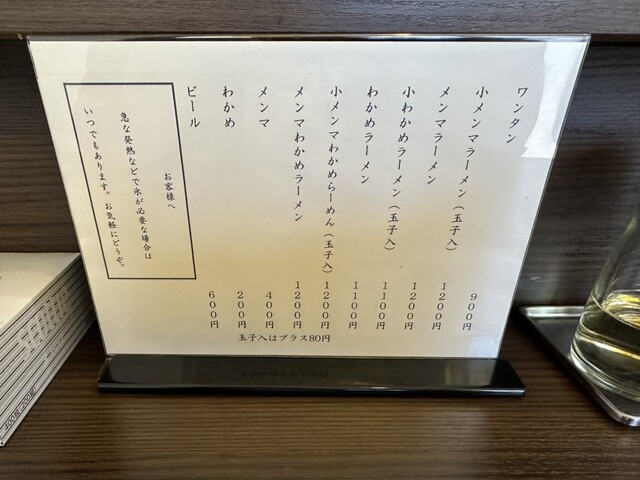 ワンタン 900円
小メンマラーメン(玉子入) 1200円
メンマラーメン 1200円
小わかめラーメン(玉子入) 1100円
わかめラーメン 1100円
小メンマわかめらーめん(玉子入) 1200円
メンマわかめラーメン 1200円
メンマ 400円
わかめ 200円
ビール 600円
玉子入はプラス80円
お客様へ
急な発熱などで氷が必要な場合は
いつでもあります。お気軽にどうぞ。
400枚(200組)